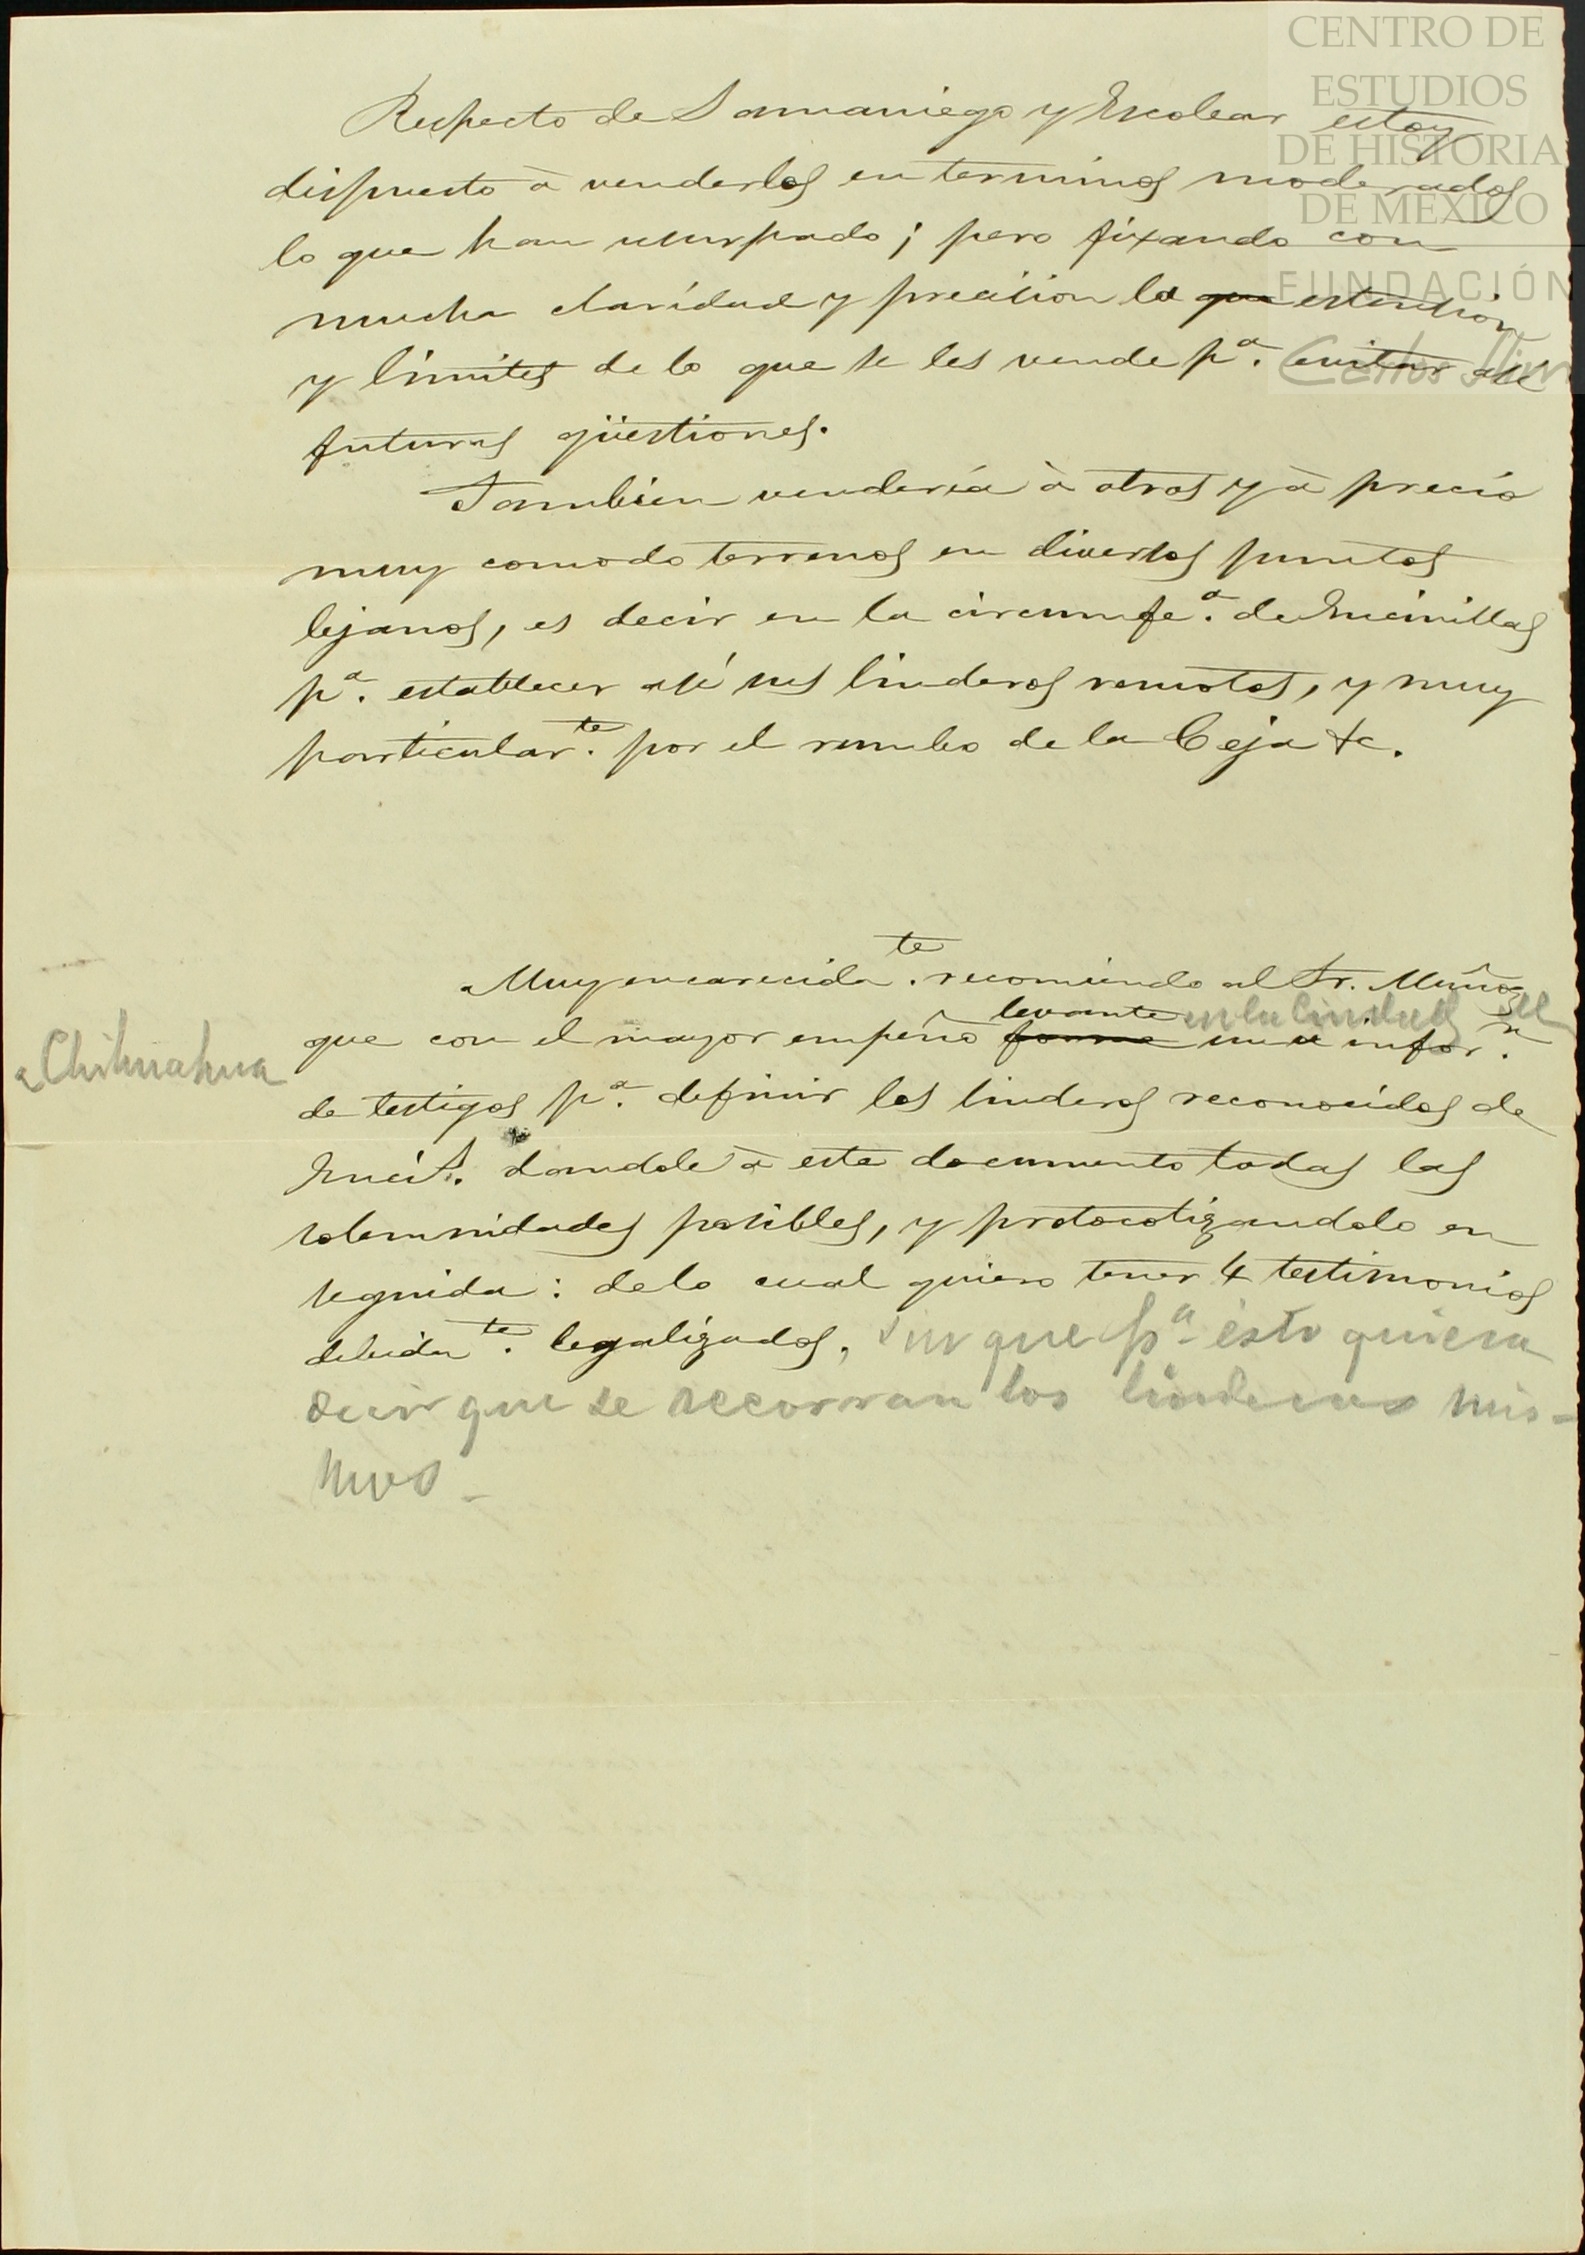 CENTRO DE
ESTUDIOS
DE HISTORIA
DE MEXICO
FUNDACIÓN
Carlos Slim
Respecto de Samaniego y Escobar estoy
dispuesto à venderles en terminos moderados
lo que han usurpado; pero fixando con
mucha claridad y precision la que estension
y limites de lo que se les vende pª. evitar asi
futuras qüestiones.
Tambien venderia à otros y à precio
muy comodo terrenos en diversos puntos
lejanos, es decir en la circunfeª. de Encinillas
pª. establecer asi sus linderos remotos, y muy
particularte. por el rumbo de la Ceja &c.
Muy encarecidate. recomiendo al Sr. Muñoz
levante en la Ciudad de
que con el mayor empeño forme una inforn.
Chihuahua
de testigos pª. definir los linderos reconocidos de
Encis. dandole à este documento todas las
solemnidades posibles, y protocolizandolo en
seguida: de lo cual quiero tener 4 testimonios
debidate. legalizados, sin que pª. ésto quiera
decir que se recorran los linderos mis-
mos_